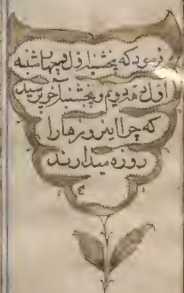 فرمود که پنجشنبه اول و چهارشنبه
اول دهه دویم و پنجشنبه آخر پرسید
که چرا اینروزها را
روزه میدارند